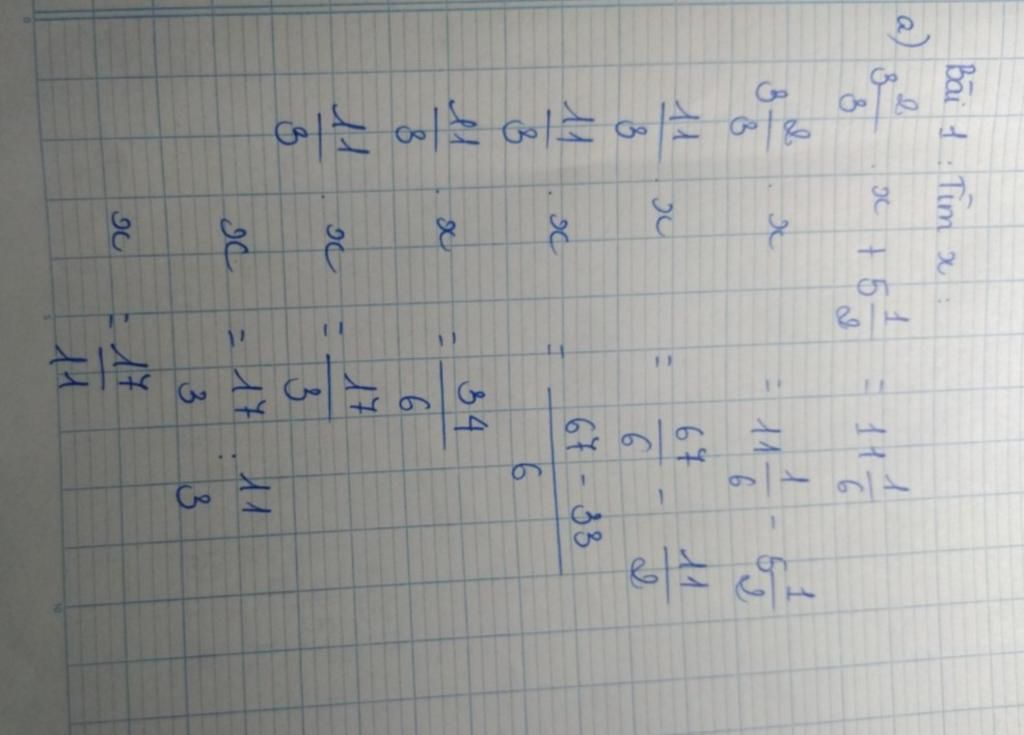 Bài 1 : Tìm x :
a) 3 2/3 . x + 5 1/2 = 11 1/6
3 2/3 . x = 11 1/6 - 5 1/2
11/3 . x = 67/6 - 11/2
11/3 . x = (67 - 33)/6
11/3 . x = 34/6
11/3 . x = 17/3
x = 17/3 : 11/3
x = 17/11